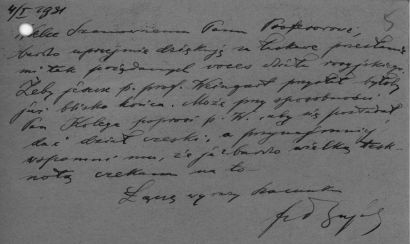 4/I 1931
Wielce Szanownemu Panu Profesorowi,
bardzo uprzejmie dziękuję za łaskawe przesłanie
mi tak pożądanych
Żeby jeszcze p. prof. Weingart przysłał byłoby
już blisko końca. Może przy sposobności
Pan Kolega poprosi p. W., aby się postarał
dać dział czeski, a przynajmniej
wspomni mu, że ja bardzo wielką tęsk-
notą czekam na to
Łączę wyrazy szacunku